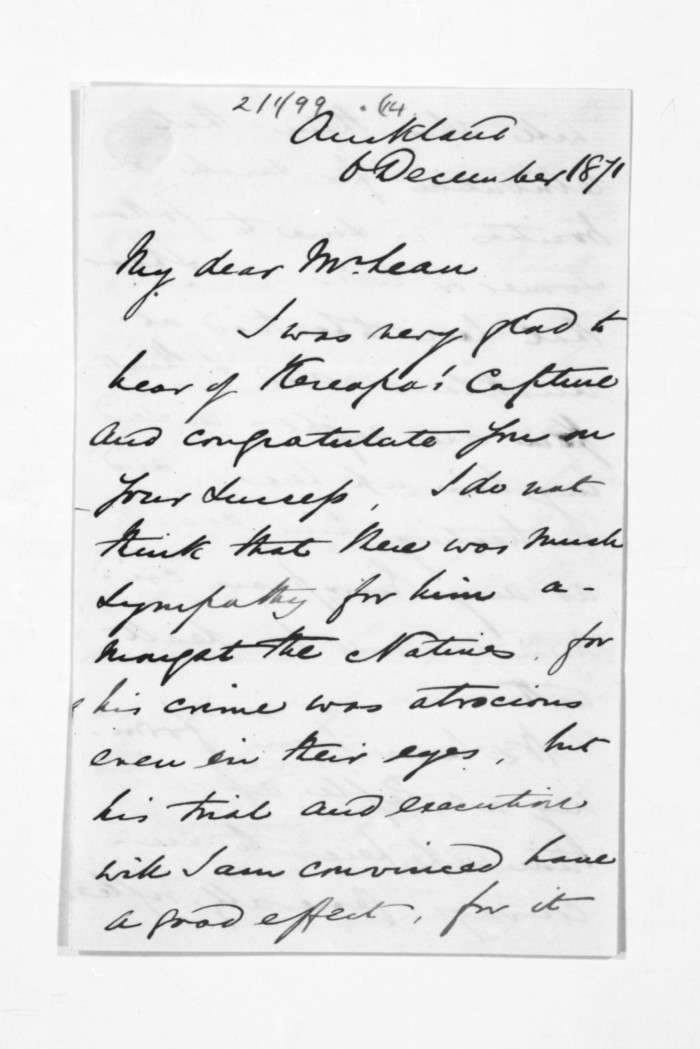 211/99 . (14
Auckland
6 December 1871
My dear McLean
I was very glad to
hear of Kereopa's Capture
and congratulate you on
your success, I do not
think that there was much
sympathy for him a-
mongst the Natives, for
his crime was atrocious
even in their eyes, but
his trial and execution
will I am convinced have
a good effect, for it